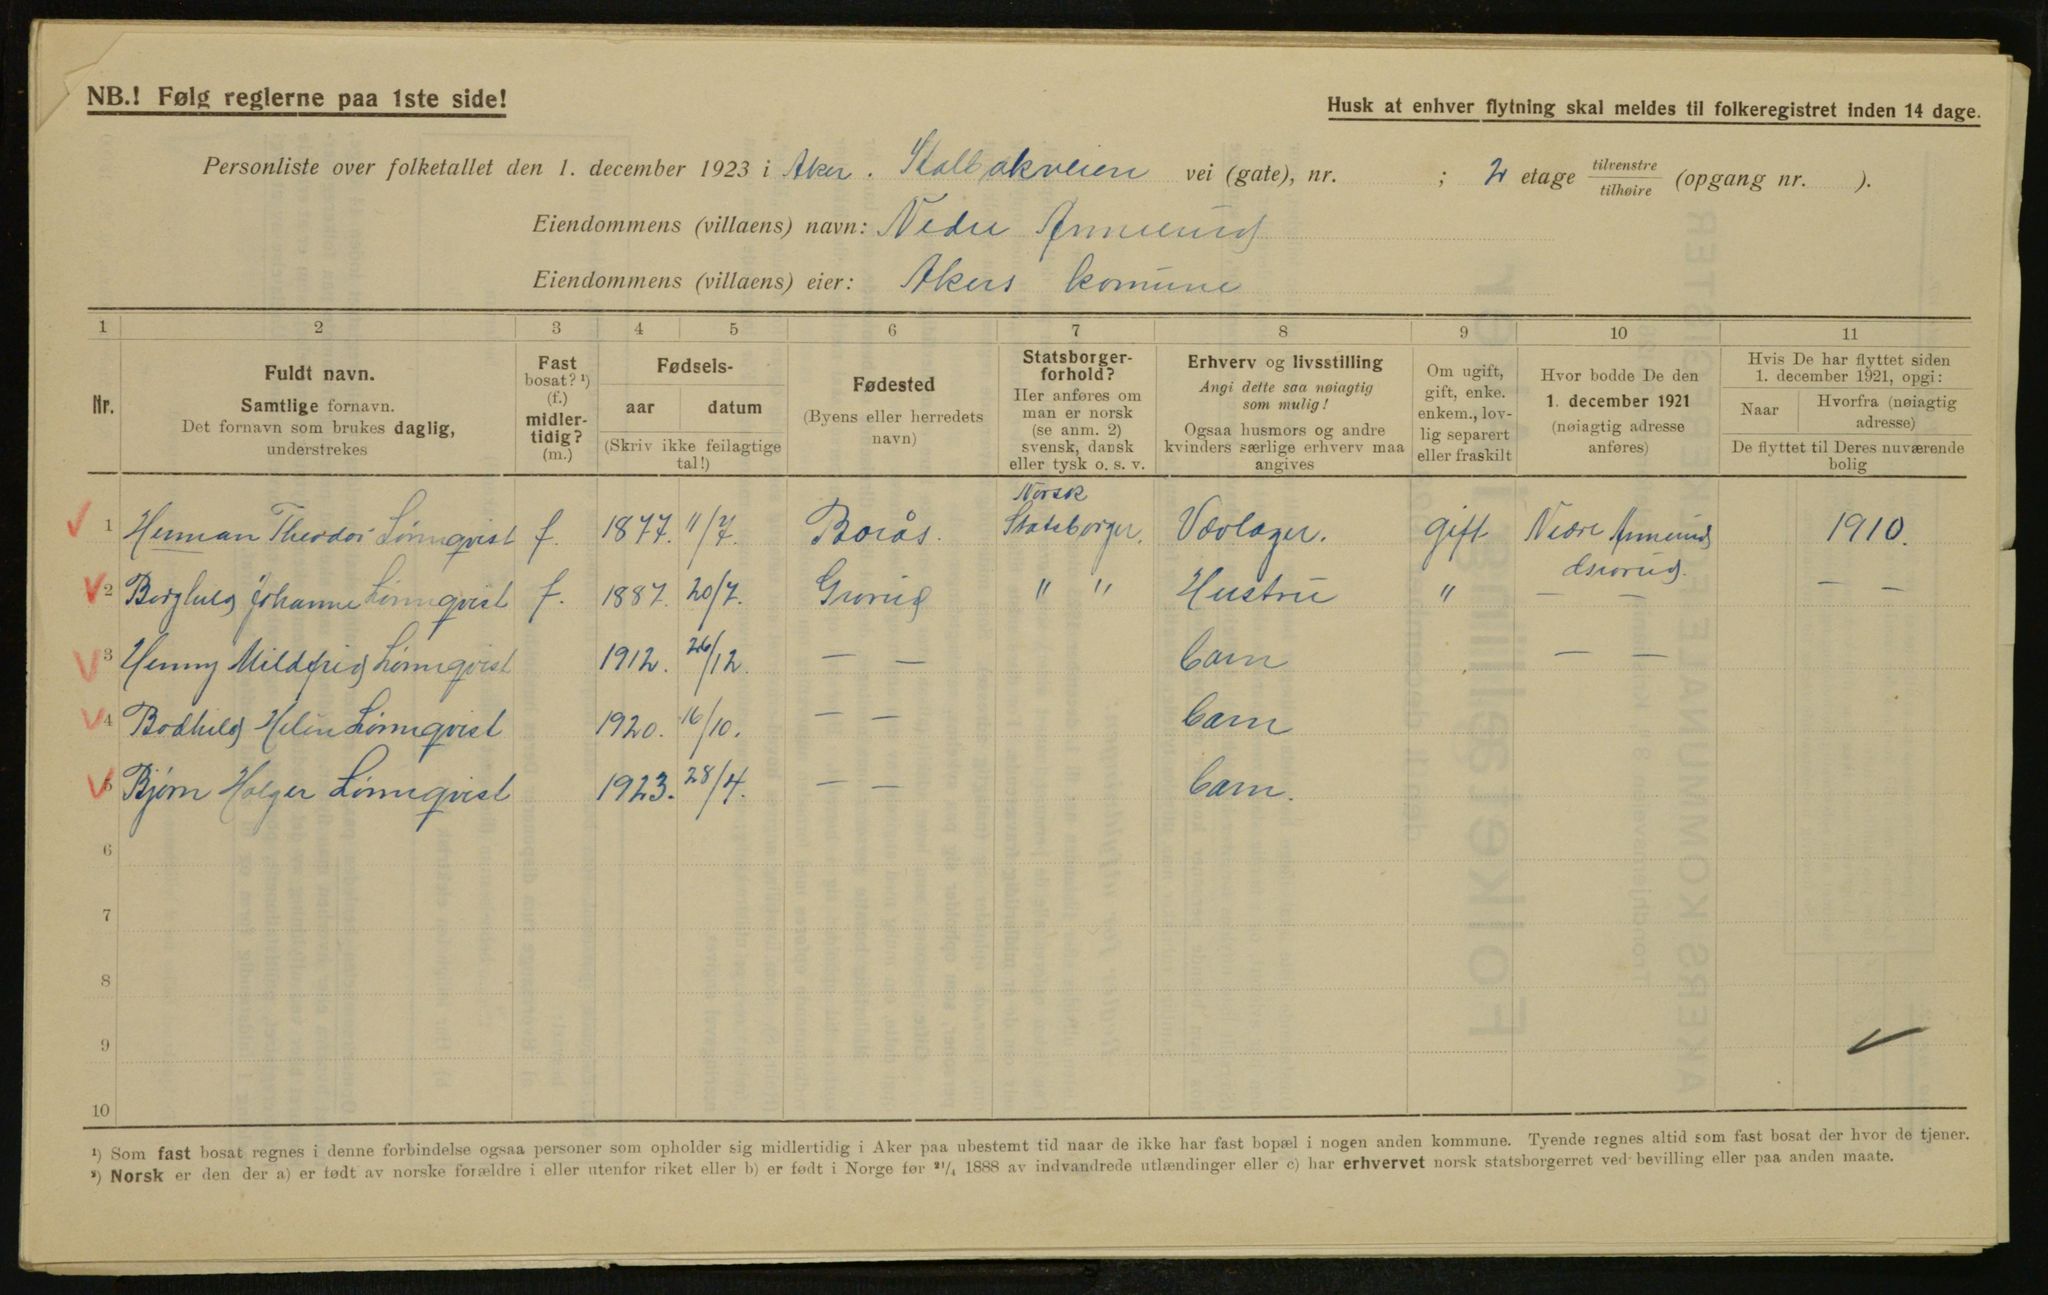 NB.! Følg reglerne paa 1ste side!
Husk at enhver flytning skal meldes til folkeregistret inden 14 dage.
Personliste over folketallet den 1. december 1923 i Aker. Stalbakveien vei (gate), nr. ; 2 etage tilvenstre tilhøire (opgang nr. ).
Eiendommens (villaens) navn: Nedre Ammerud
Eiendommens (villaens) eier: Akers komune
1 2 3 4 5 6 7 8 9 10 11
Nr.
Fuldt navn.
Samtlige fornavn.
Det fornavn som brukes daglig,
understrekes
Fast
bosat? ¹)
(f.)
midler-
tidig?
(m.)
Fødsels-
aar datum
(Skriv ikke feilagtige
tal!)
Fødested
(Byens eller herredets
navn)
Statsborger-
forhold?
Her anføres om
man er norsk
(se anm. 2)
svensk, dansk
eller tysk o. s. v.
Erhverv og livsstilling
Angi dette saa nøiagtig
som mulig!
Ogsaa husmors og andre
kvinders særlige erhverv maa
angives
Om ugift,
gift, enke.
enkem., lov-
lig separert
eller fraskilt
Hvor bodde De den
1. december 1921
(nøiagtig adresse
anføres)
Hvis De har flyttet siden
1. december 1921, opgi:
Naar Hvorfra (nøiagtig
adresse)
De flyttet til Deres nuværende
bolig
1 Herman Theodor Lönnqvist f. 1877. 11/7. Borås. Norsk Statsborger. Vævlager. gift Nedre Ammerud Grorud. 1910.
2 Borghild Johanne Lönnqvist f. 1887. 20/7. Grorud " " Hustru " — — — —
3 Henny Mildfrid Lönnqvist 1912. 26/12. — — barn — —
4 Bodhild Helen Lönnqvist 1920. 16/10. — — barn
5 Bjørn Holger Lönnqvist 1923. 28/4. — — barn.
6
7
8
9
10
¹) Som fast bosat regnes i denne forbindelse ogsaa personer som opholder sig midlertidig i Aker paa ubestemt tid naar de ikke har fast bopæl i nogen anden kommune. Tyende regnes altid som fast bosat der hvor de tjener.
²) Norsk er den der a) er født av norske forældre i eller utenfor riket eller b) er født i Norge før ²¹/₄ 1888 av indvandrede utlændinger eller c) har erhvervet norsk statsborgerret ved bevilling eller paa anden maate.